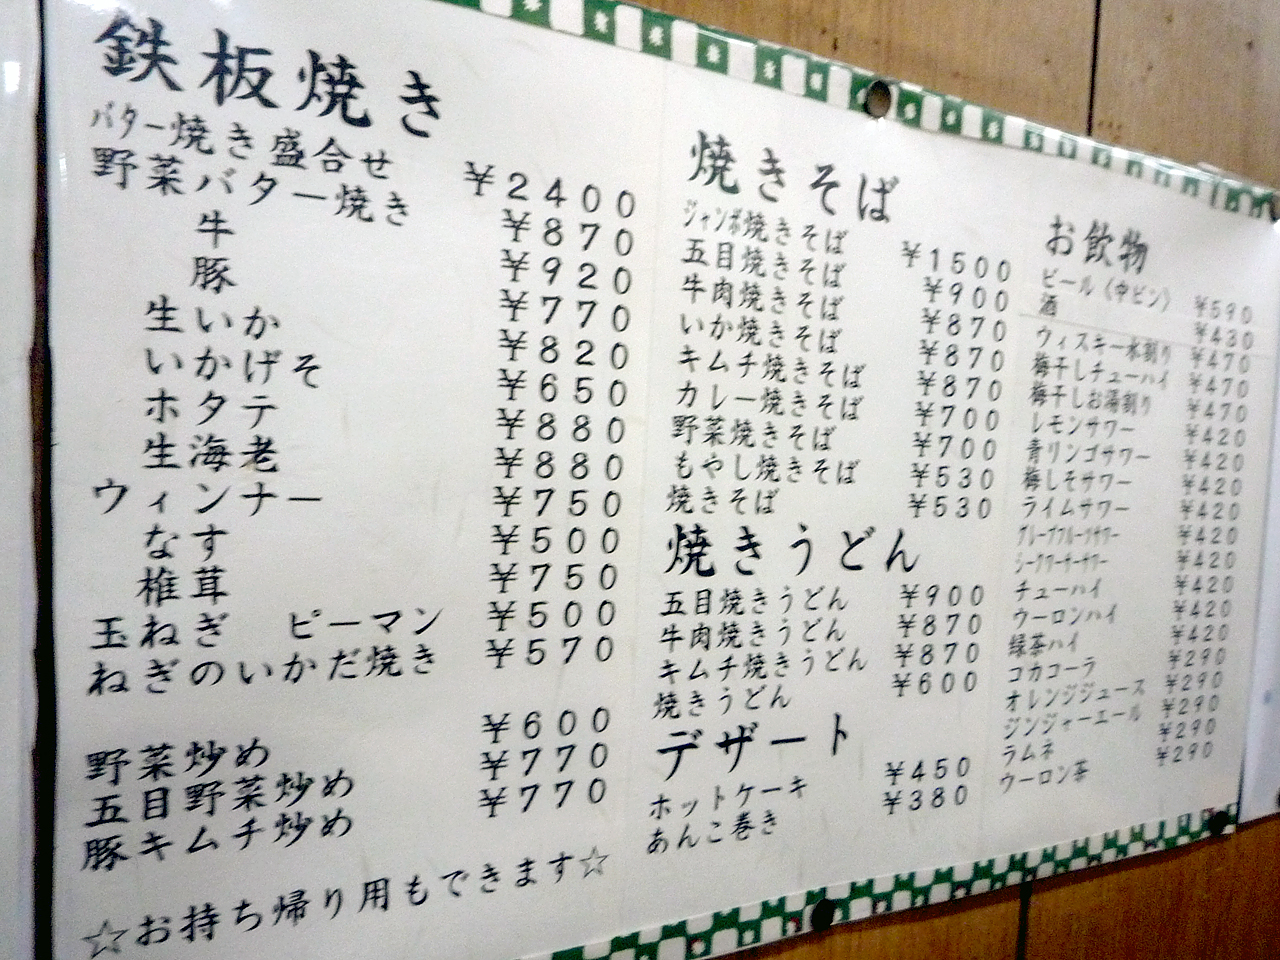 鉄板焼き
バター焼き盛合せ ¥2400
野菜バター焼き ¥870
牛 ¥920
豚 ¥770
生いか ¥820
いかげそ ¥650
ホタテ ¥880
生海老 ¥880
ウィンナー ¥750
なす ¥500
椎茸 ¥750
玉ねぎ ピーマン ¥500
ねぎのいかだ焼き ¥570
野菜炒め ¥600
五目野菜炒め ¥770
豚キムチ炒め ¥770
☆お持ち帰り用もできます☆
焼きそば
ジャンボ焼きそば ¥1500
五目焼きそば ¥900
牛肉焼きそば ¥870
いか焼きそば ¥870
キムチ焼きそば ¥870
カレー焼きそば ¥700
野菜焼きそば ¥700
もやし焼きそば ¥530
焼きそば ¥530
焼きうどん
五目焼きうどん ¥900
牛肉焼きうどん ¥870
キムチ焼きうどん ¥870
焼きうどん ¥600
デザート
ホットケーキ ¥450
あんこ巻き ¥380
お飲物
ビール(中ビン) ¥590
酒 ¥430
ウィスキー水割り ¥470
梅干しチューハイ ¥470
梅干しお湯割り ¥470
レモンサワー ¥420
青リンゴサワー ¥420
梅しそサワー ¥420
ライムサワー ¥420
グレープフルーツサワー ¥420
シークワーサーサワー ¥420
チューハイ ¥420
ウーロンハイ ¥420
緑茶ハイ ¥420
コカコーラ ¥290
オレンジジュース ¥290
ジンジャーエール ¥290
ラムネ ¥290
ウーロン茶 ¥290